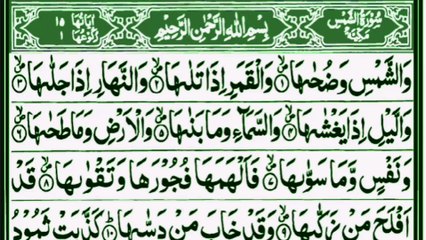 سُورَةُ الشَّمْسِ مَكِّيَّةٌ بِسْمِ اللّٰهِ الرَّحْمٰنِ الرَّحِيْمِ اٰيَاتُهَا ١٥
وَالشَّمْسِ وَضُحٰىهَا ۝١ وَالْقَمَرِ اِذَا تَلٰىهَا ۝٢ وَالنَّهَارِ اِذَا جَلّٰىهَا ۝٣
وَالَّيْلِ اِذَا يَغْشٰىهَا ۝٤ وَالسَّمَآءِ وَمَا بَنٰىهَا ۝٥ وَالْاَرْضِ وَمَا طَحٰىهَا ۝٦
وَنَفْسٍ وَّمَا سَوّٰىهَا ۝٧ فَاَلْهَمَهَا فُجُوْرَهَا وَتَقْوٰىهَا ۝٨ قَدْ
اَفْلَحَ مَنْ زَكّٰىهَا ۝٩ وَقَدْ خَابَ مَنْ دَسّٰىهَا ۝١٠ كَذَّبَتْ ثَمُوْدُ